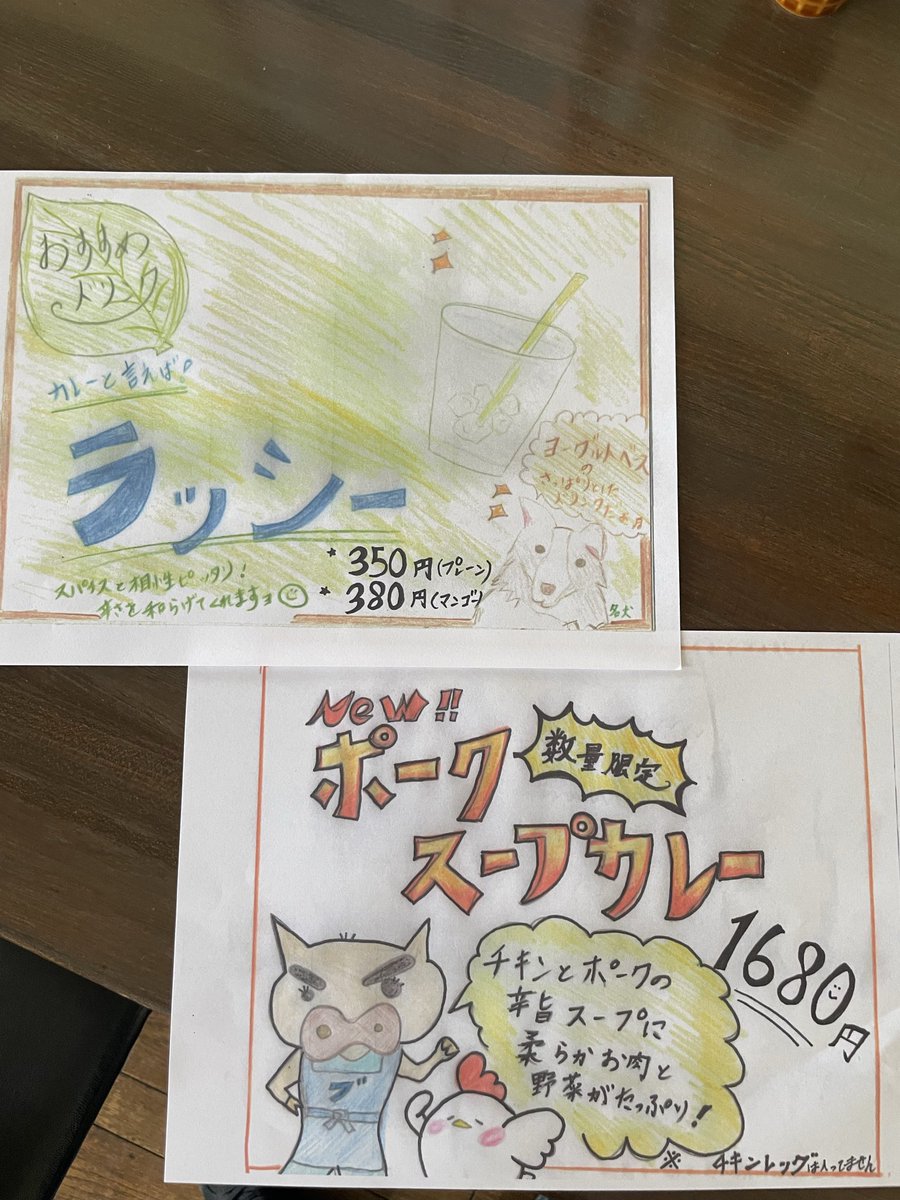 おすすめ
ドリンク
カレーと言えば!
ラッシー
ヨーグルトベース
の
さっぱりとした
ドリンクだよ
350円(プレーン)
380円(マンゴー)
スパイスと相性ピッタリ!
辛さを和らげてくれますョ
名犬
New!!
ポーク
数量限定
スープカレー
1680円
チキンとポークの
辛旨スープに
柔らかお肉と
野菜がたっぷり!
ブ
※ チキンレッグは入ってません